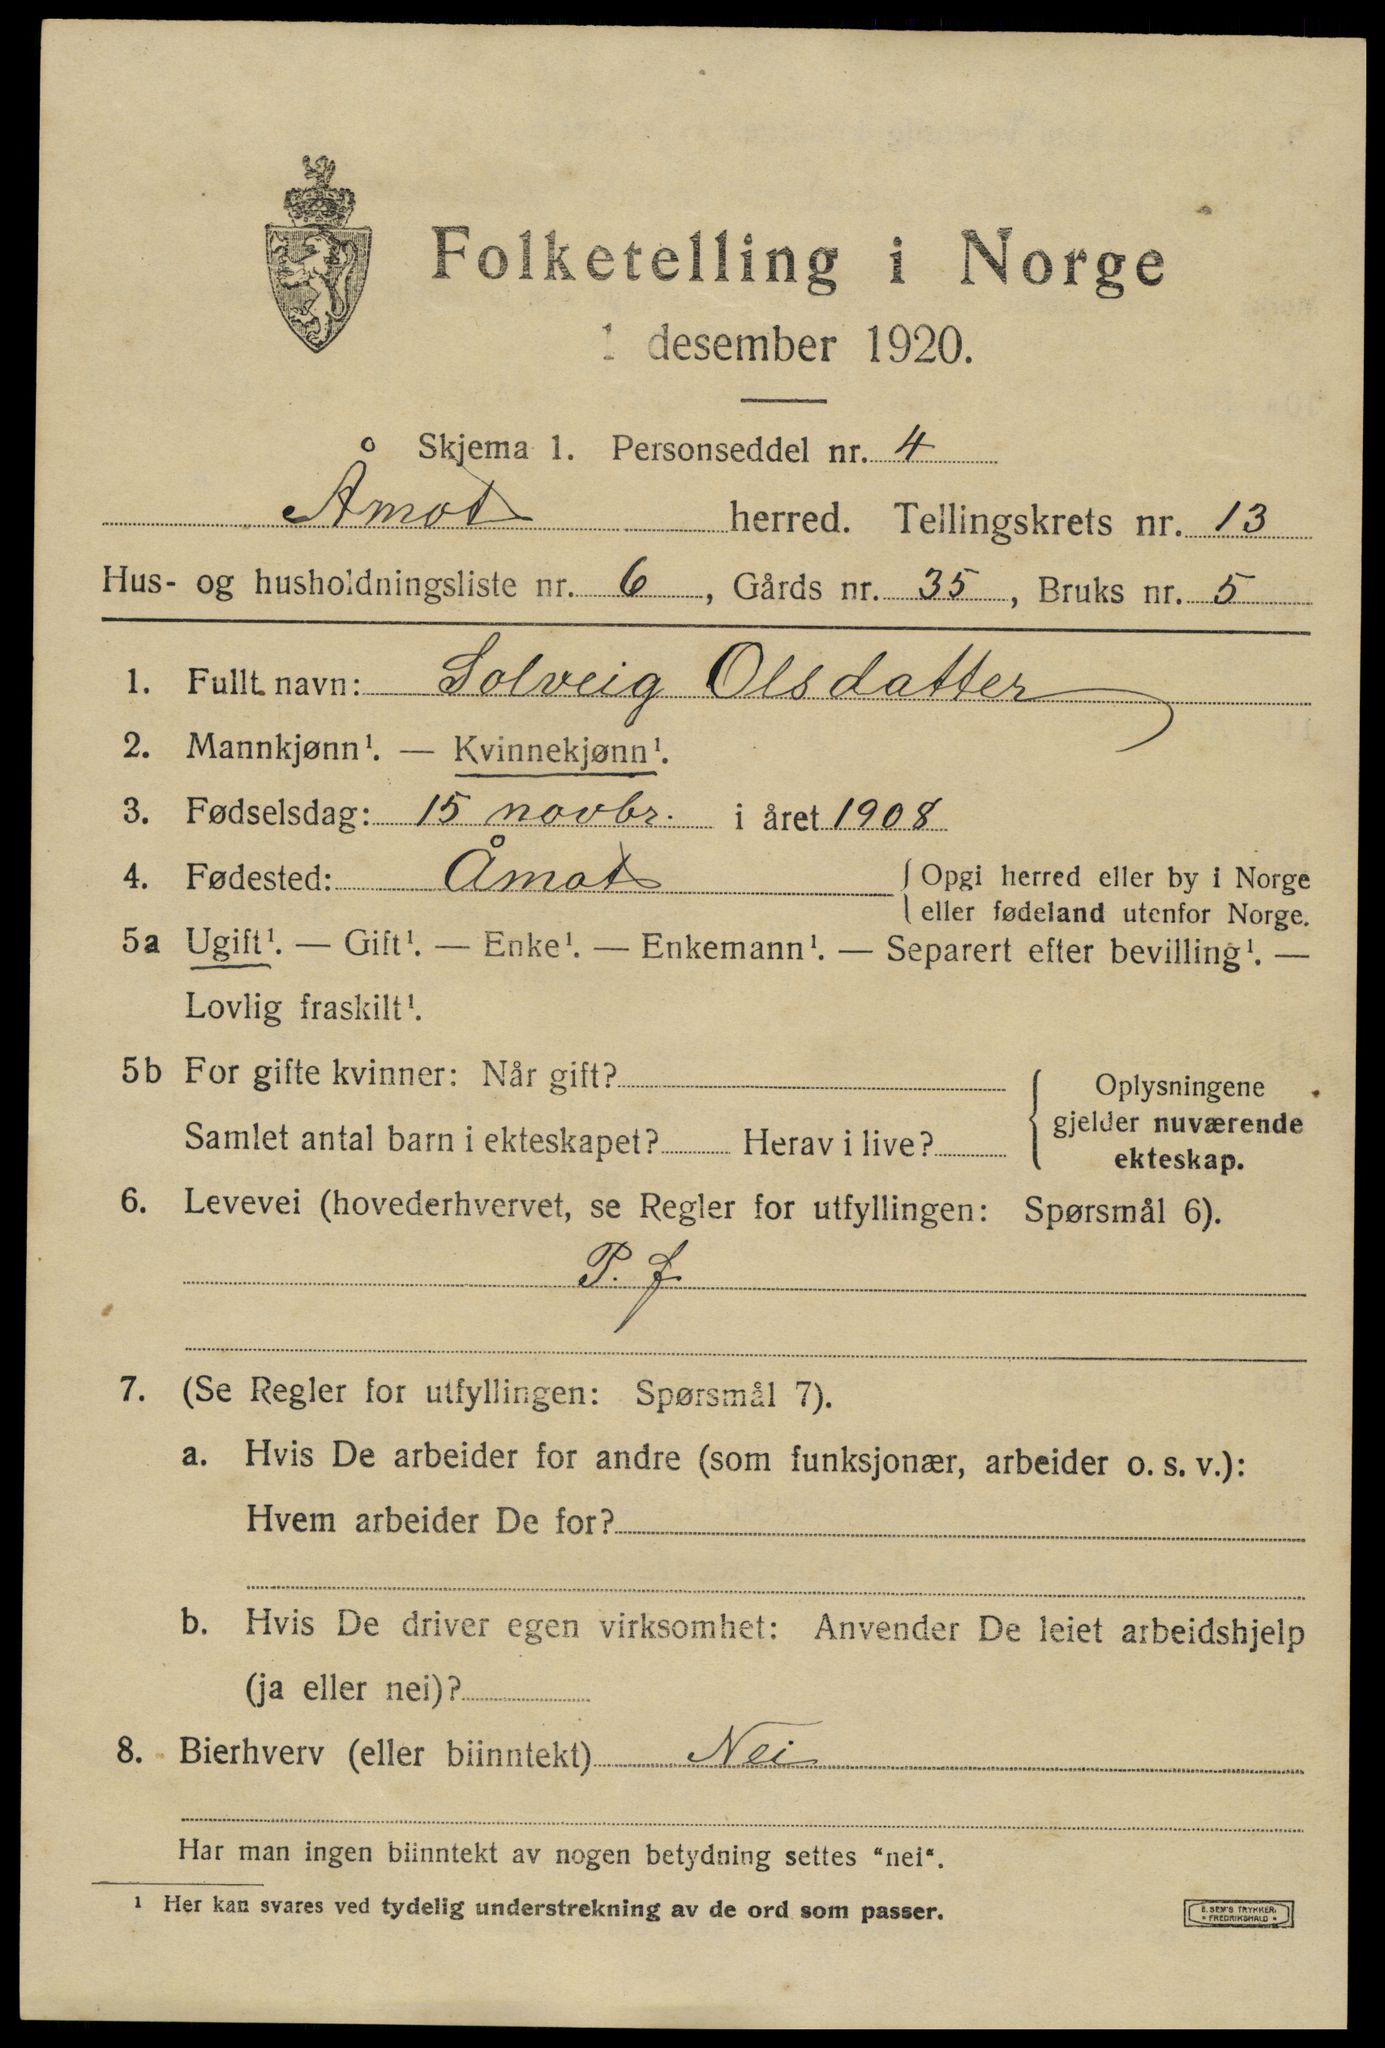 Folketelling i Norge
1 desember 1920.
Skjema 1. Personseddel nr. 4
Åmot herred. Tellingskrets nr. 13
Hus- og husholdningsliste nr. 6, Gårds nr. 35, Bruks nr. 5
1. Fullt navn: Solveig Olsdatter
2. Mannkjønn¹. — Kvinnekjønn¹.
3. Fødselsdag: 15 novbr. i året 1908
4. Fødested: Åmot { Opgi herred eller by i Norge
eller fødeland utenfor Norge.
5a Ugift¹. — Gift¹. — Enke¹. — Enkemann¹. — Separert efter bevilling¹. —
Lovlig fraskilt¹.
5b For gifte kvinner: Når gift?
Samlet antal barn i ekteskapet? Herav i live?
Oplysningene
gjelder nuværende
ekteskap.
6. Levevei (hovederhvervet, se Regler for utfyllingen: Spørsmål 6).
P. f
7. (Se Regler for utfyllingen: Spørsmål 7).
a. Hvis De arbeider for andre (som funksjonær, arbeider o. s. v.):
Hvem arbeider De for?
b. Hvis De driver egen virksomhet: Anvender De leiet arbeidshjelp
(ja eller nei)?
8. Bierhverv (eller biinntekt) Nei
Har man ingen biinntekt av nogen betydning settes "nei".
¹ Her kan svares ved tydelig understrekning av de ord som passer.
E. SEM'S TRYKKER.
* FREDRIKSHALD *